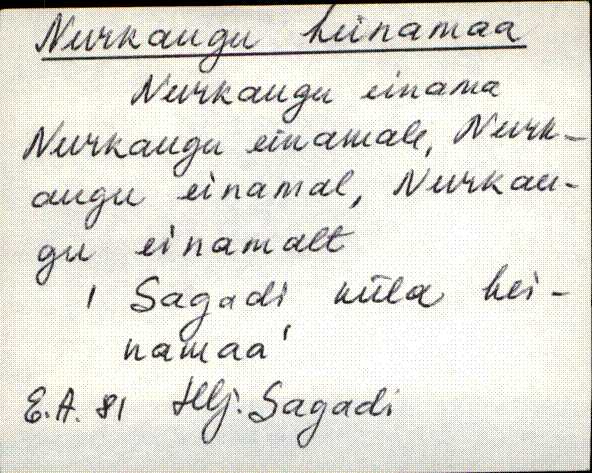 Nurkaugu heinamaa
Nurkaugu einama
Nurkaugu einamale, Nurk-
augu einamal, Nurkau-
gu einamalt
' Sagadi küla hei-
namaa'
E.A. 81 Hlj. Sagadi